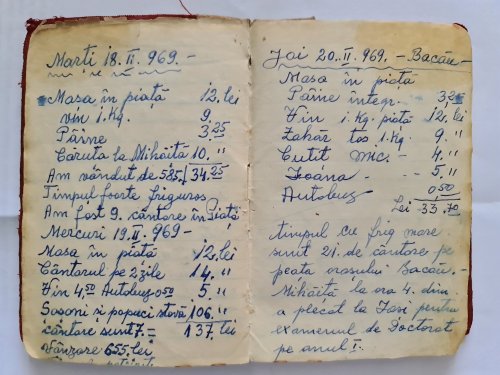 Marti 18.II.969.-
Masa în piață 12. lei
vin 1. Kg. 9
Pâine 3,25
Caruta la Mihăită 10. "
Am vândut de 585. 34.25
Timpul foarte friguros
Am fost 9. cântare în Piată
Mercuri 19.II.969-
Masa în piată 12. lei
Cântarul pe 2 zile 14. "
Vin 4,50 Autobuz 0,50 5 "
Sosoni si papuci stovă 106. "
cântare sunt 7 = 137. lei
Vânzare 655. lei
Joi 20.II.969. - Bacău -
Masa în piață
Pâine integr. 3,25
Vin 1 Kg. piată 12. lei
Zahăr tos 1. Kg. 9. "
Cutit mic. - 4. "
Ioana - 5. "
Autobuz 0,50
Lei 33.70
timpul cu frig mare
sunt 21. de cântare pe
peata orasului Bacău. -
Mihăită la ora 4. dim
a plecat la Iasi pentru
examenul de Doctorat
pe anul I.